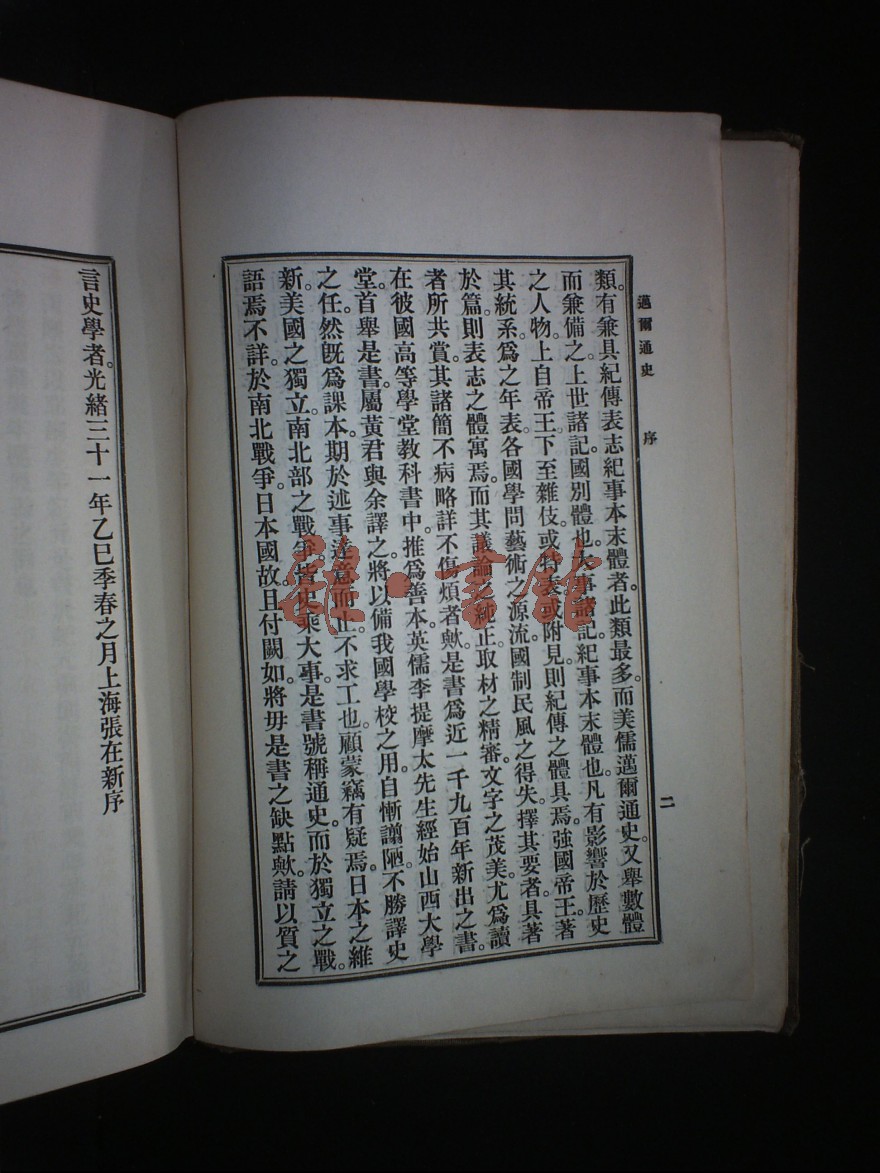 邁爾通史 序 二
類。有兼具紀傳表志紀事本末體者。此類最多。而美儒邁爾通史。又舉數體
而兼備之。上世諸記國別體也。大事諸記紀事本末體也。凡有影響於歷史
之人物。上自帝王。下至雜伎。或特表或附見。則紀傳之體具焉。強國帝王。著
其統系。爲之年表。各國學問藝術之源流。國制民風之得失。擇其要者。具著
於篇。則表志之體寓焉。而其議論之純正。取材之精審。文字之茂美。尤爲讀
者所共賞。其諸簡不病略。詳不傷煩者歟。是書爲近一千九百年新出之書。
在彼國高等學堂教科書中。推爲善本。英儒李提摩太先生經始山西大學
堂。首舉是書。屬黃君與余譯之。將以備我國學校之用。自慚譾陋。不勝譯史
之任。然既爲課本。期於述事達意而止。不求工也。顧蒙竊有疑焉。日本之維
新。美國之獨立。南北部之戰爭。皆史乘大事。是書號稱通史。而於獨立之戰。
語焉不詳。於南北戰爭日本國故。且付闕如。將毋是書之缺點歟。請以質之
言史學者。光緒三十一年乙巳季春之月上海張在新序
雜·書館